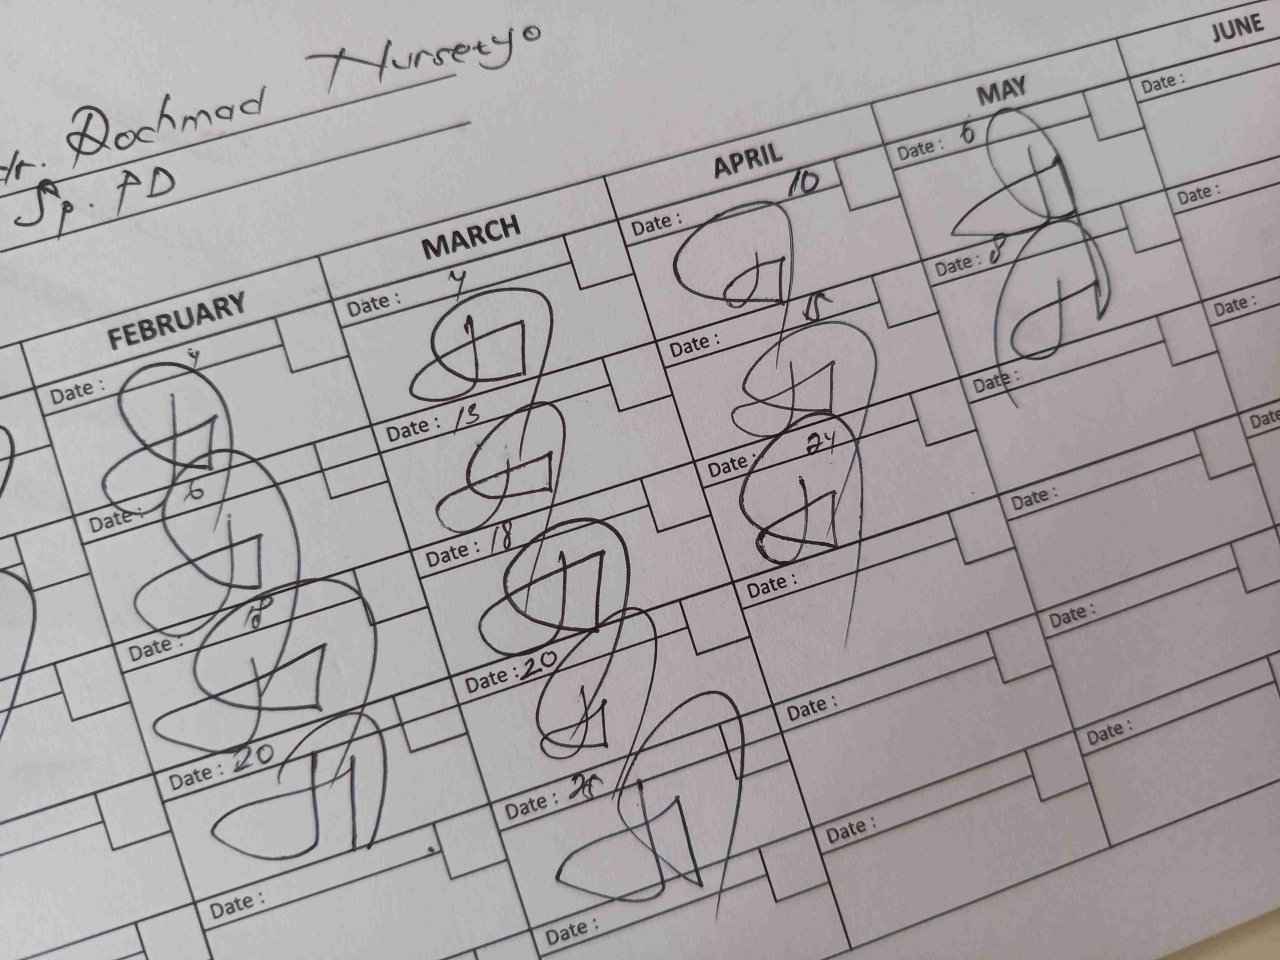 dr. Rochmad Nursetyo
Sp. PD
FEBRUARY MARCH APRIL MAY JUNE
Date : 4 Date : 4 Date : 10 Date : 6 Date :
Date : 6 Date : 13 Date : Date : 8 Date :
Date : 18 Date : 18 Date : 24 Date : Date :
Date : 20 Date : 20 Date : Date : Date
Date : Date : 25 Date : Date :
Date : Date : Date :